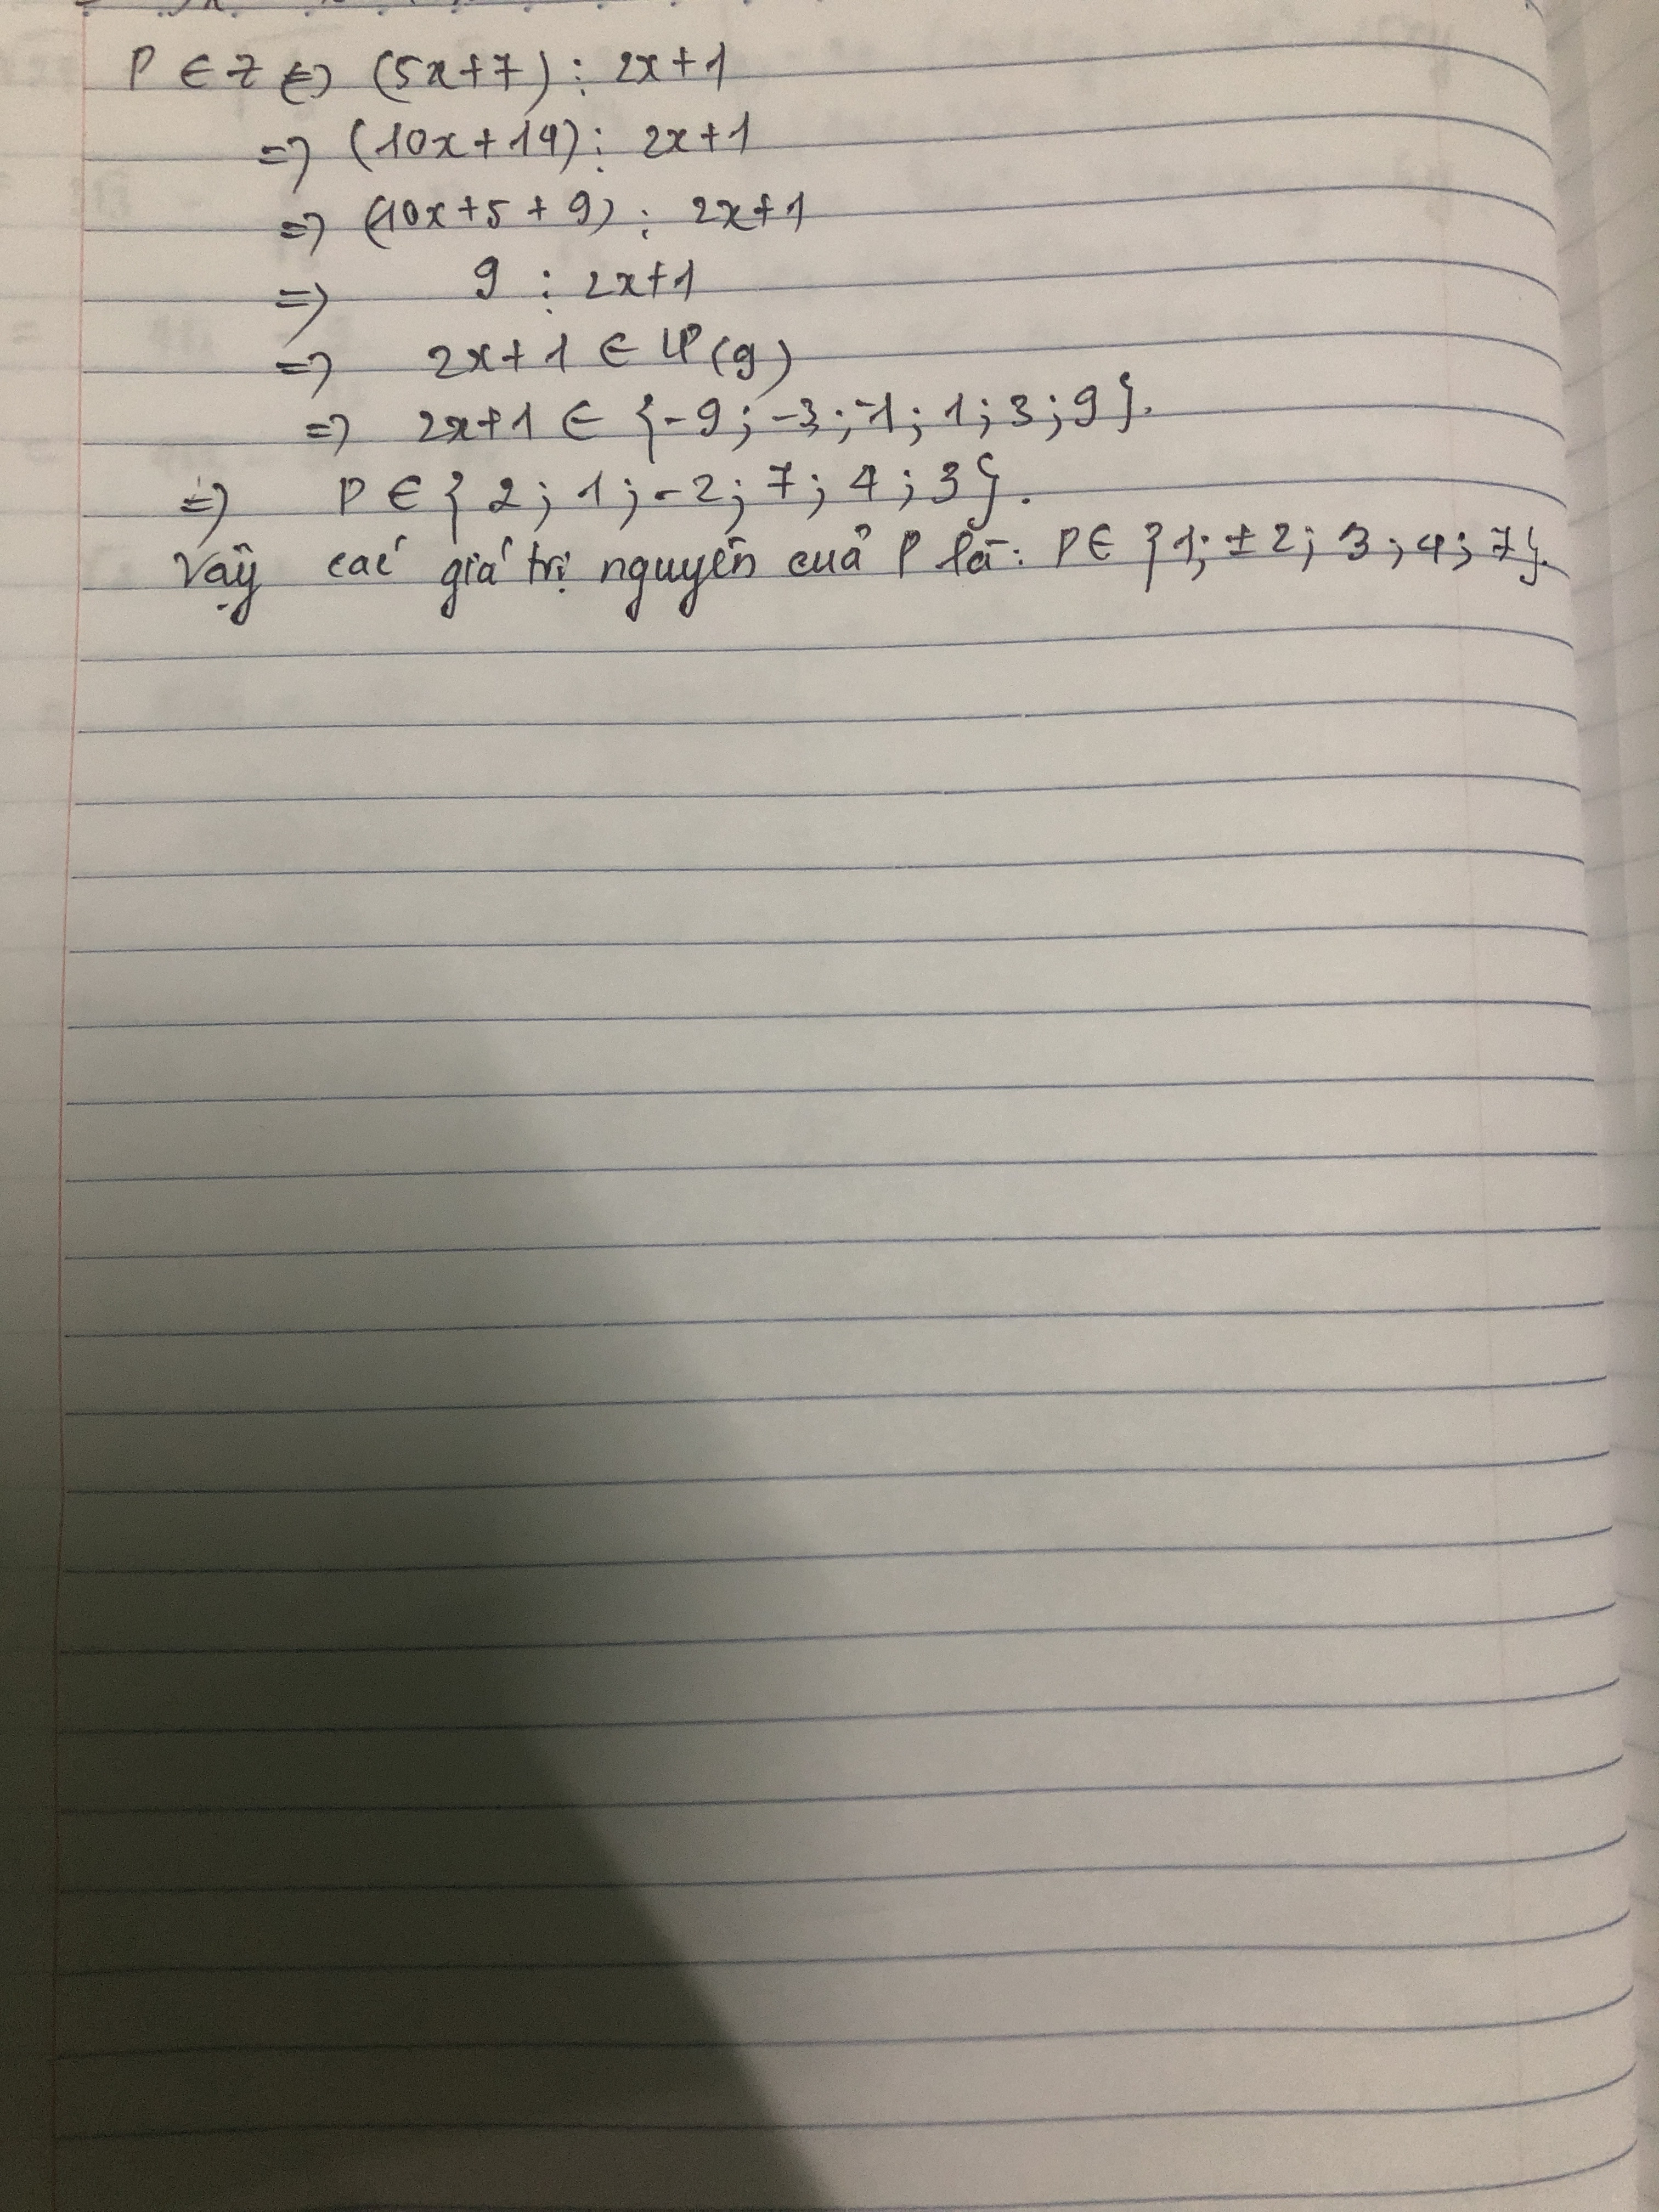 P ∈ Z ⇔ (5x+7) ⋮ 2x+1
=> (10x+14) ⋮ 2x+1
=> (10x+5+9) ⋮ 2x+1
=> 9 ⋮ 2x+1
=> 2x+1 ∈ Ư(9)
=> 2x+1 ∈ {-9; -3; -1; 1; 3; 9}.
=> P ∈ {2; 1; -2; 7; 4; 3}.
Vậy các giá trị nguyên của P là: P ∈ {1; ±2; 3; 4; 7}.